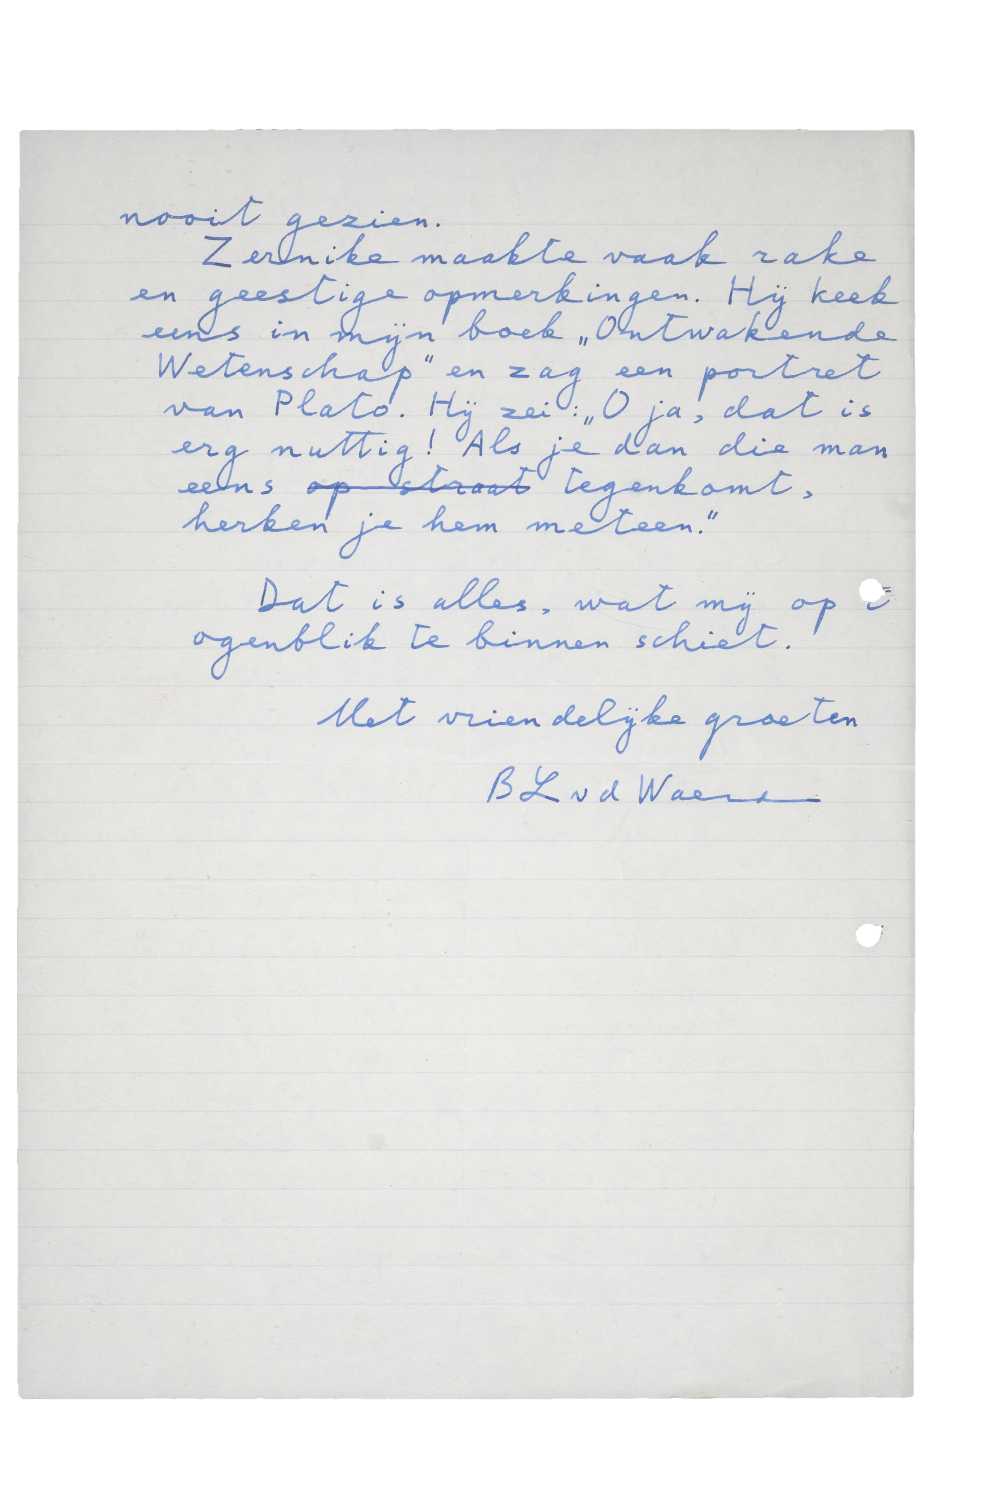 nooit gezien.
Zernike maakte vaak rake
en geestige opmerkingen. Hij keek
eens in mijn boek „Ontwakende
Wetenschap” en zag een portret
van Plato. Hij zei: „O ja, dat is
erg nuttig! Als je dan die man
eens op straat tegenkomt,
herken je hem meteen.”
Dat is alles, wat mij op
ogenblik te binnen schiet.
Met vriendelijke groeten
B L v d Waerden